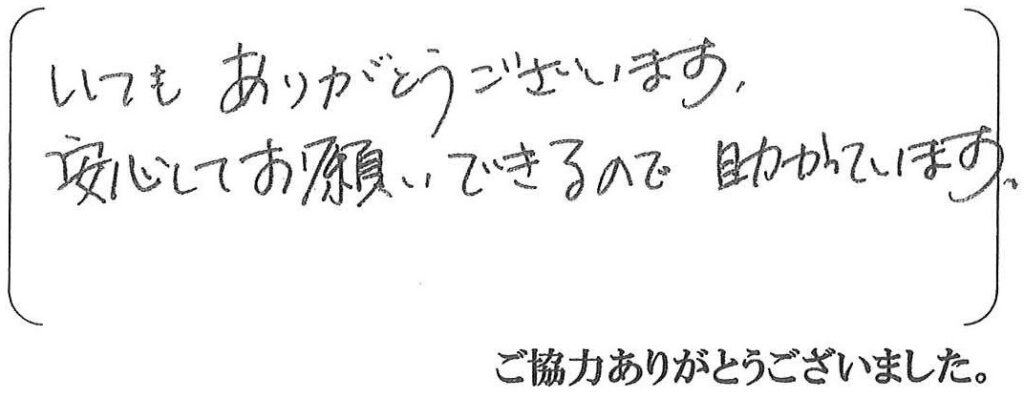 いつもありがとうございます、
安心してお願いできるので助かっています。
ご協力ありがとうございました。